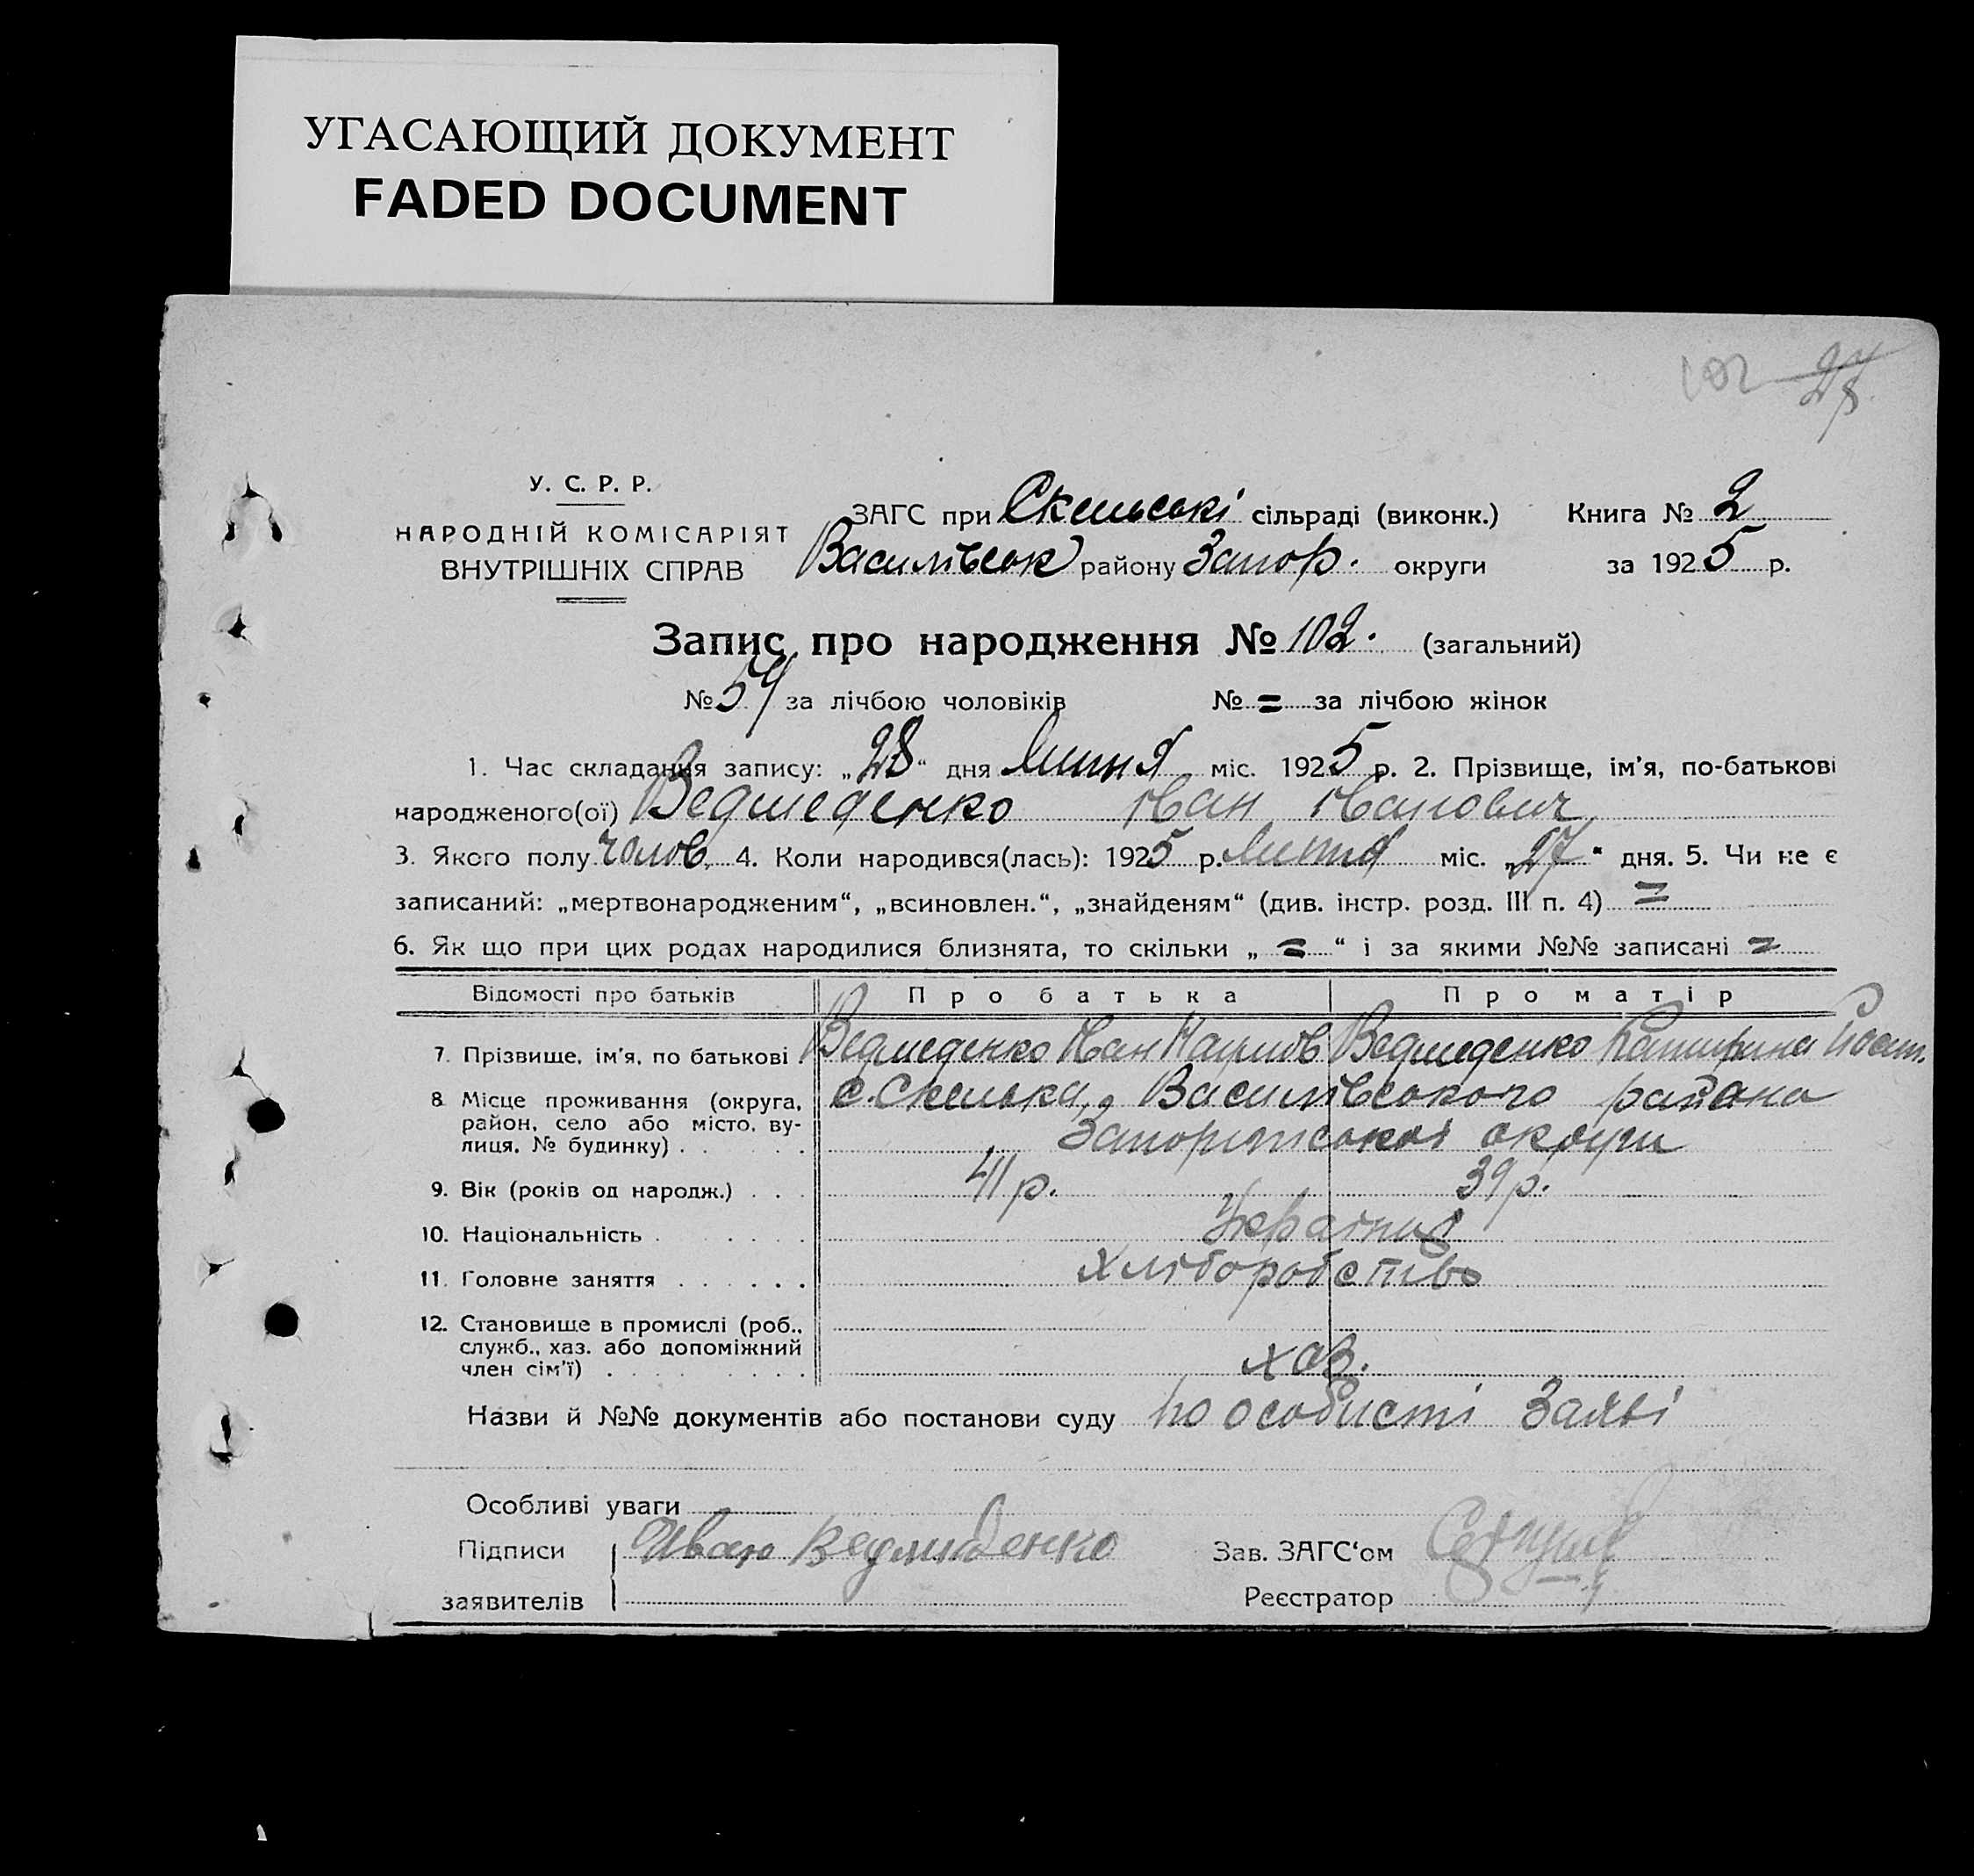 УГАСАЮЩИЙ ДОКУМЕНТ
FADED DOCUMENT
102 27
У. С. Р. Р.
НАРОДНІЙ КОМІСАРІЯТ
ВНУТРІШНІХ СПРАВ
ЗАГС при Скельські сільраді (виконк.) Книга № 2
Василівськ району Запор. округи за 1925 р.
Запис про народження № 102. (загальний)
№ 54 за лічбою чоловіків № = за лічбою жінок
1. Час складання запису: „28“ дня Липня міс. 1925 р. 2. Прізвище, ім'я, по-батькові
народженого(ої) Ведмеденко Іван Іванович
3. Якого полу чолов. 4. Коли народився(лась): 1925 р. Липня міс. „27“ дня. 5. Чи не є
записаний: „мертвонародженим“, „всиновлен.“, „знайденям“ (див. інстр. розд. III п. 4) =
6. Як що при цих родах народилися близнята, то скільки „ = “ і за якими №№ записані =
Відомості про батьків Про батька Про матір
7. Прізвище, ім'я, по батькові Ведмеденко Іван Наумов Ведмеденко Катирина
8. Місце проживання (округа, с. Скелька, Василівського района
район, село або місто, ву-
лиця, № будинку) . Запоріжської округи
9. Вік (років од народж.) . . . 41 р. 39 р.
10. Національність . Україн
11. Головне заняття . хліборобство
12. Становище в промислі (роб.,
служб., хаз. або допоміжний
член сім'ї) . хаз.
Назви й №№ документів або постанови суду по особисті Заяві
Особливі уваги
Підписи Иван Ведмиденко Зав. ЗАГС'ом
заявителів Реєстратор